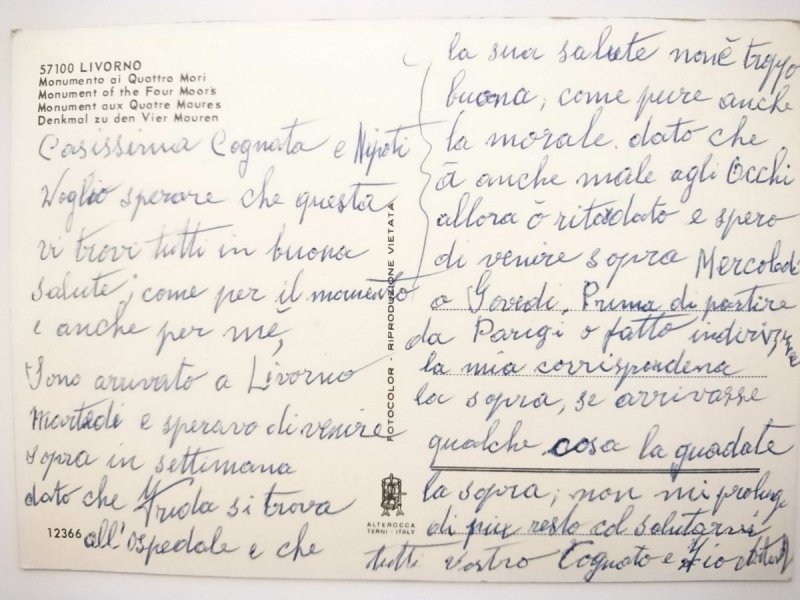 57100 LIVORNO
Monumento ai Quattro Mori
Monument of the Four Moor's
Monument aux Quatre Maures
Denkmal zu den Vier Mauren
Carissima Cognata e Nipoti
Voglio sperare che questa
vi trovi tutti in buona
salute; come per il momento
e anche per mè,
Sono arrivato a Livorno
Martedi e speravo di venire
sopra in settimana
dato che Truda si trova
all'Ospedale e che
12366
FOTOCOLOR - RIPRODUZIONE VIETATA
ALTEROCCA
TERNI - ITALY
la sua salute nonè troppo
buona, come pure anche
la morale. dato che
à anche male agli Occhi
allora ò ritardato e spero
di venire sopra Mercoledi
o Govedi, Prima di partire
da Parigi o fatto indirizzare
la mia corrispondena
la sopra, se arrivasse
qualche cosa la guadate
la sopra; non mi prolungo
di piu resto col salutarvi
tutti vostro Cognato e Zio